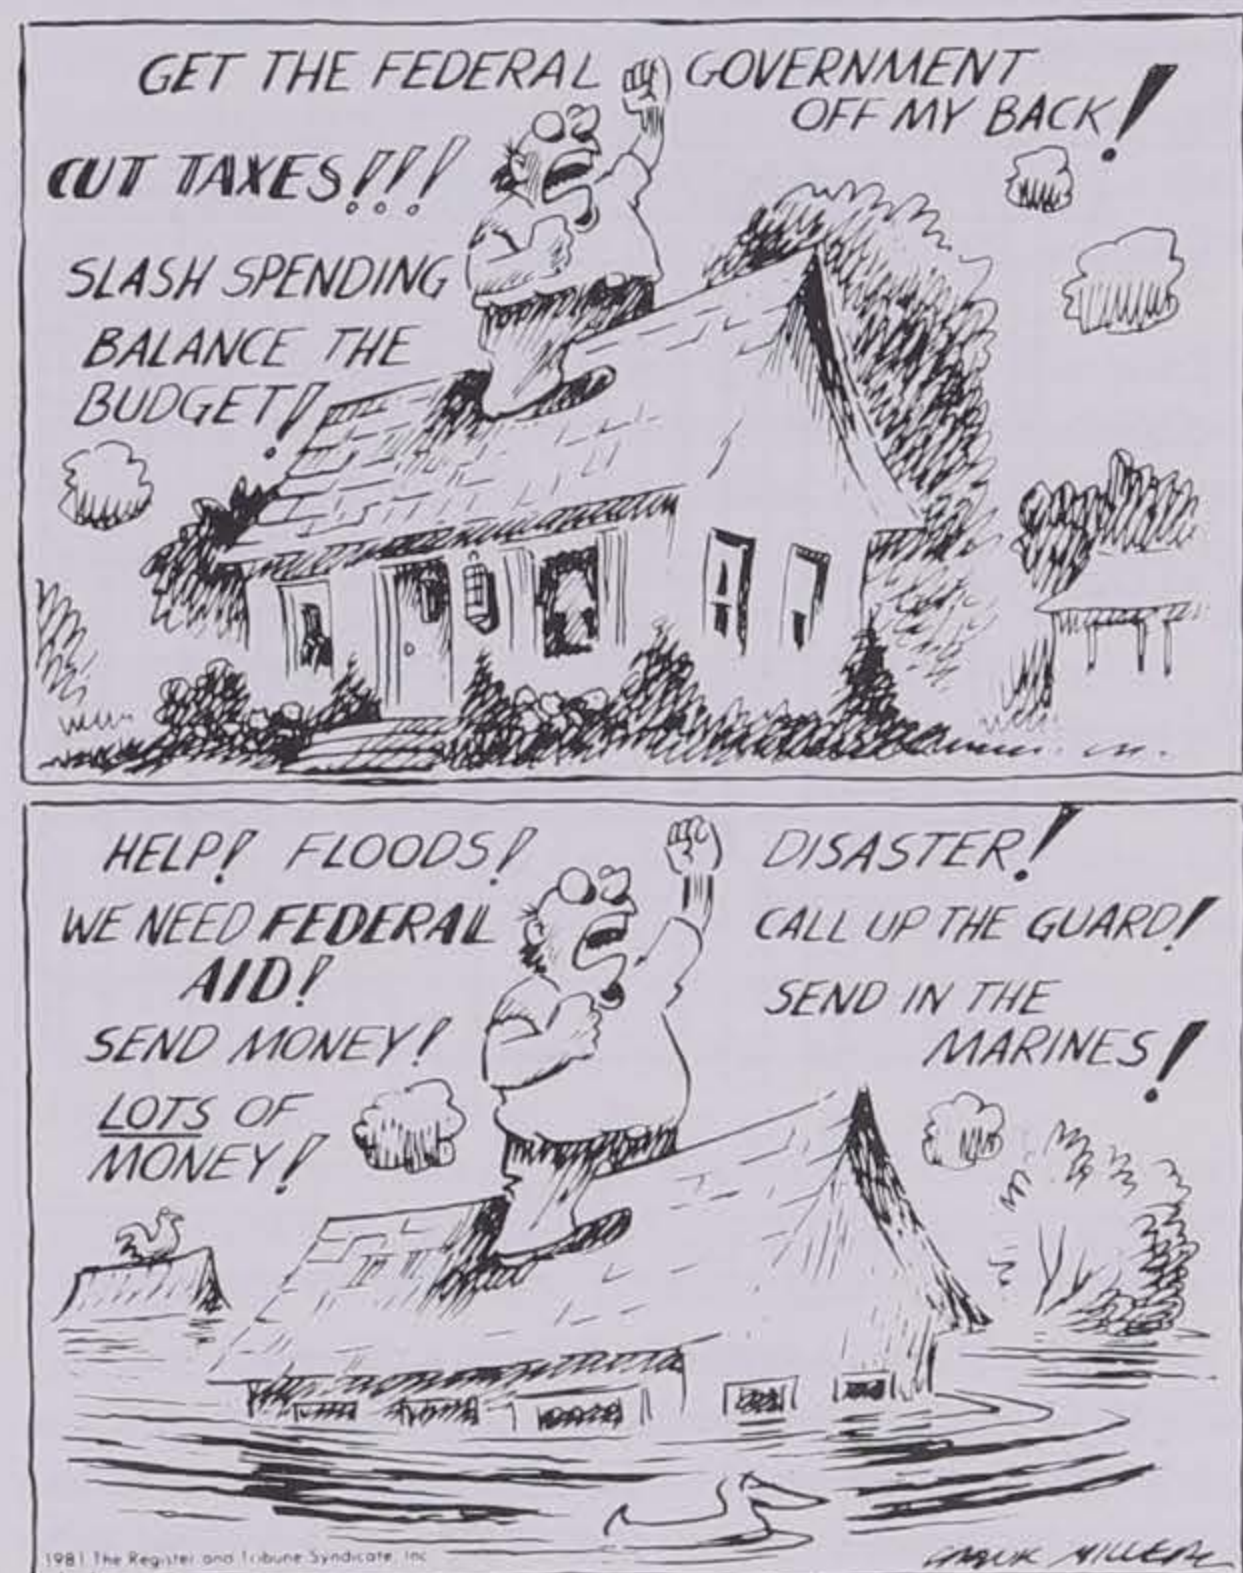 GET THE FEDERAL GOVERNMENT
OFF MY BACK!
CUT TAXES!!!
SLASH SPENDING
BALANCE THE
BUDGET!
HELP! FLOODS!
WE NEED FEDERAL
AID!
SEND MONEY!
LOTS OF
MONEY!
DISASTER!
CALL UP THE GUARD!
SEND IN THE
MARINES!
1981 The Register and Tribune Syndicate, Inc
FRANK MILLER